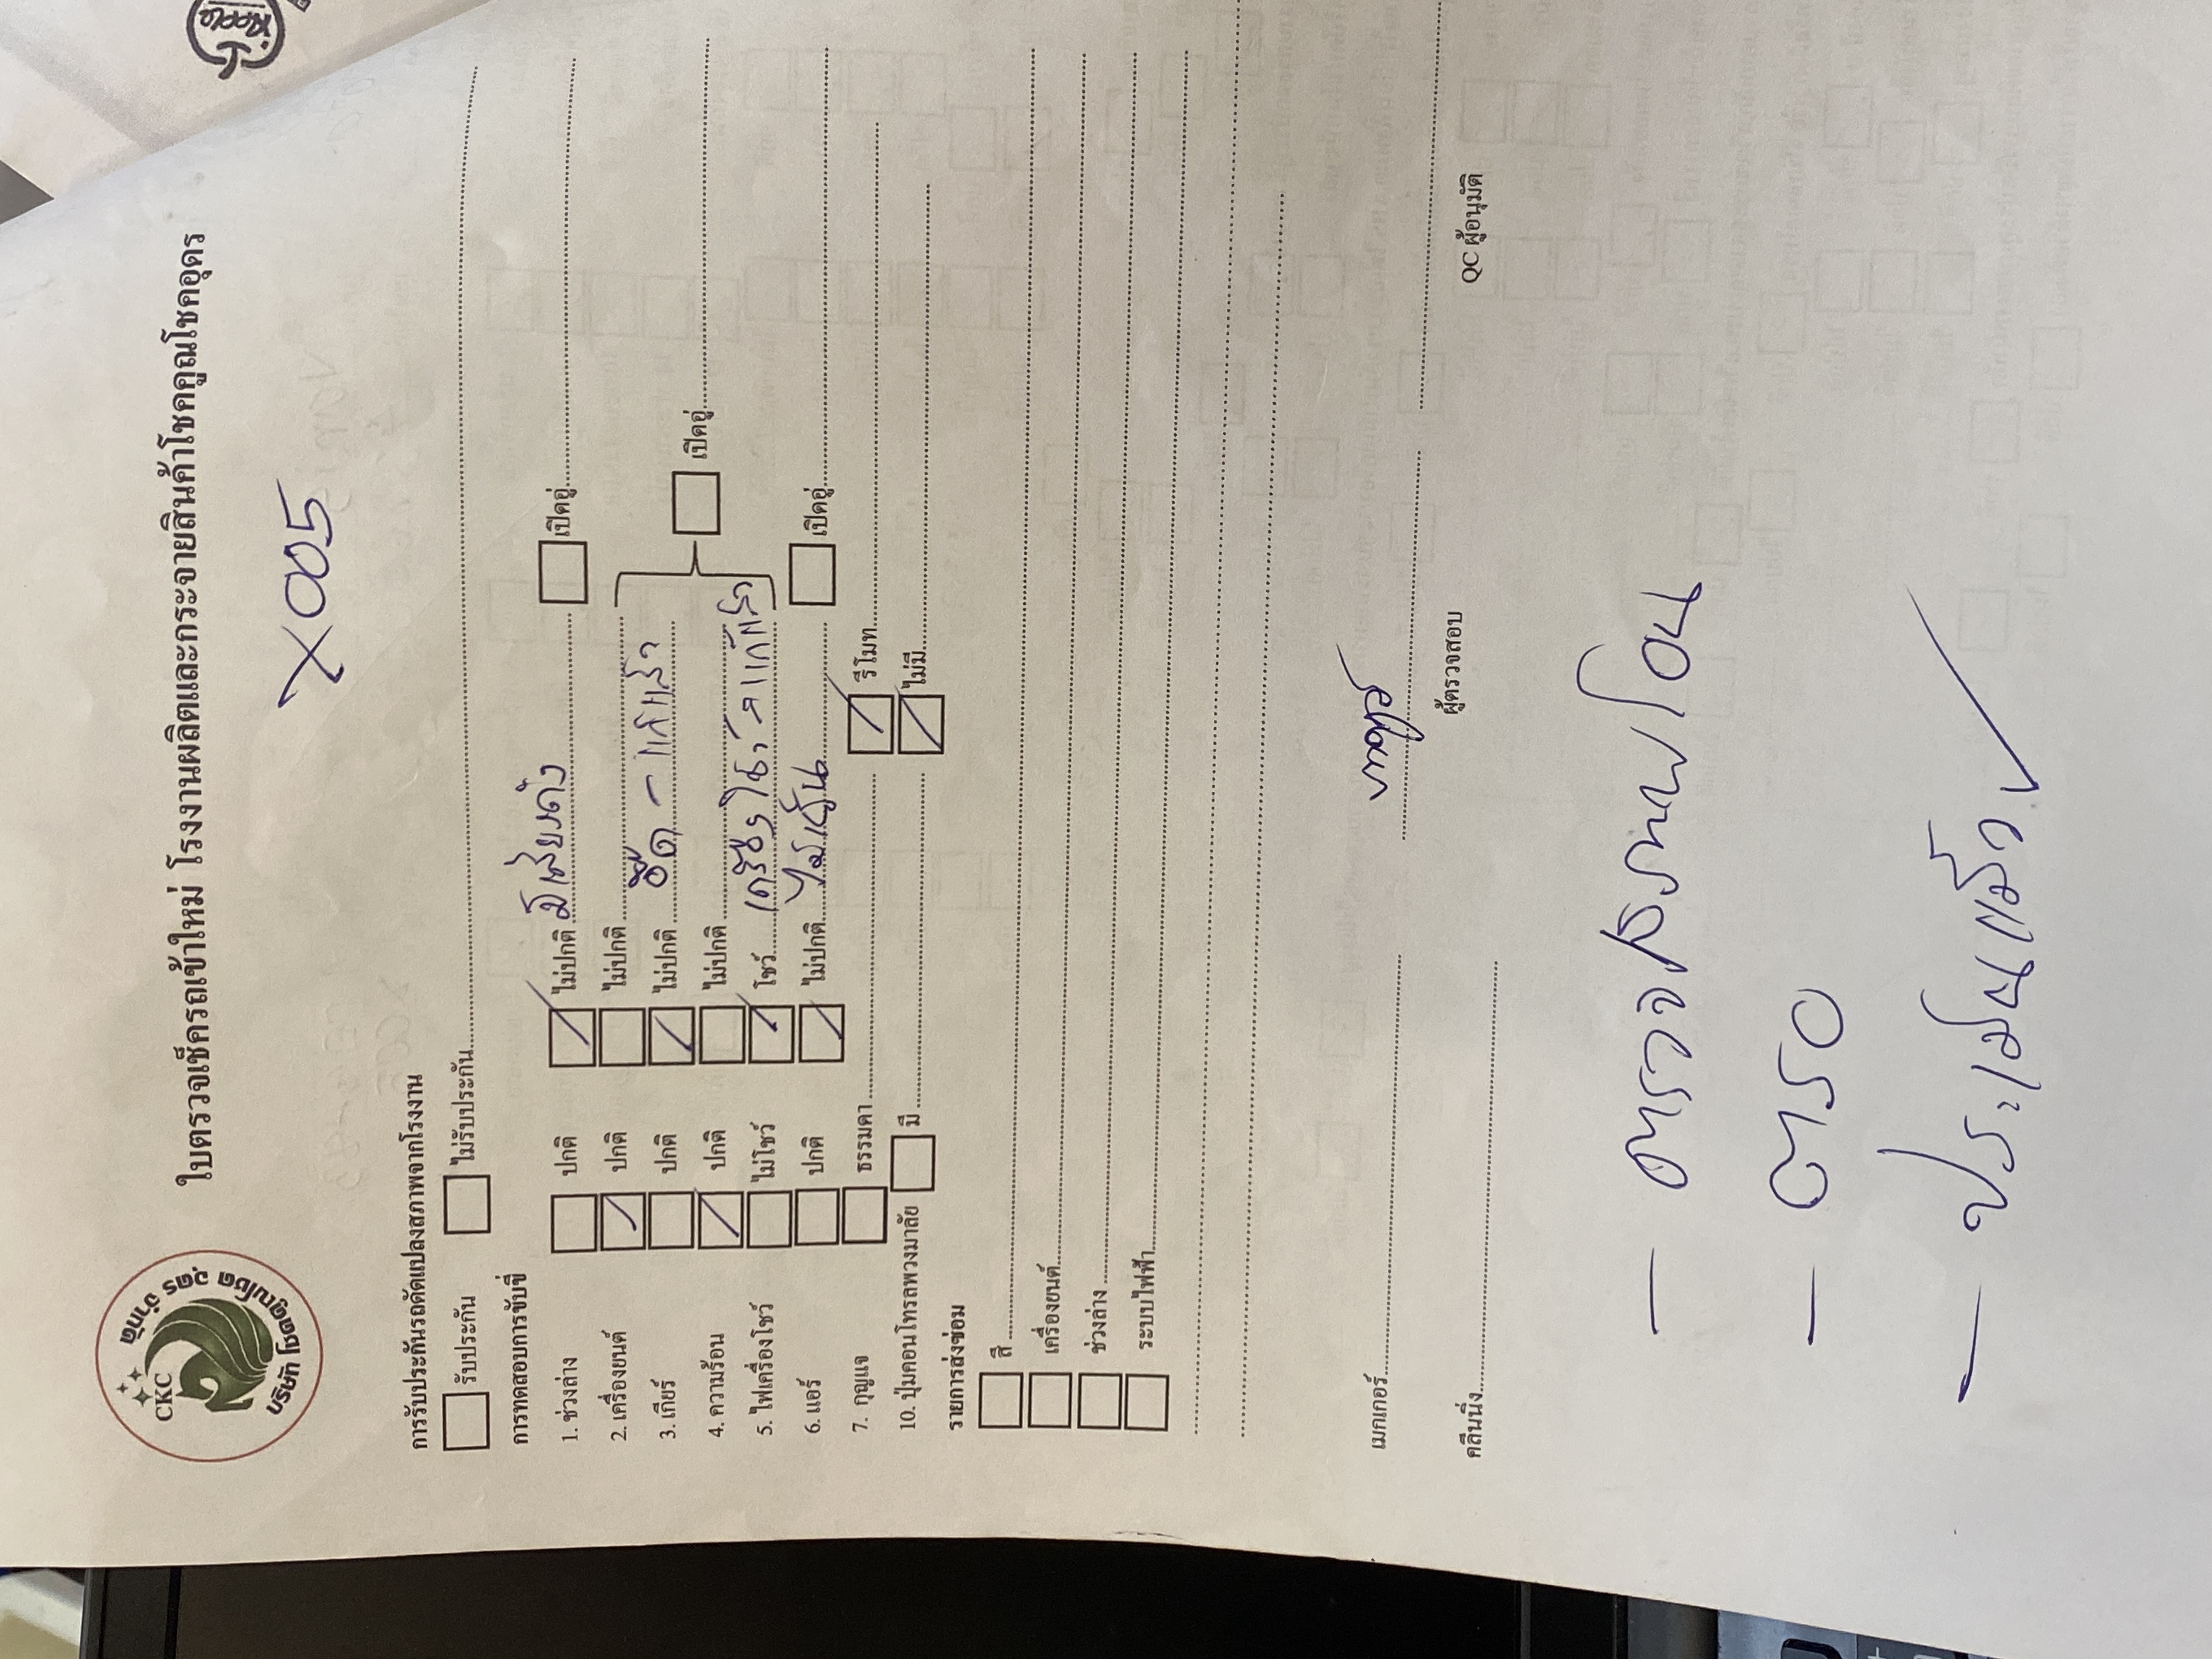 CKC
บริษัท โชคคูณโชค อุดร จำกัด
ใบตรวจเช็ครถเข้าใหม่ โรงงานผลิตและกระจายสินค้าโชคคูณโชคอุดร
X005
การรับประกันรถดัดแปลงสภาพจากโรงงาน
รับประกัน ไม่รับประกัน
การทดสอบการขับขี่
1. ช่วงล่าง ปกติ ไม่ปกติ มีเสียงดัง เปิดอู่
2. เครื่องยนต์ ปกติ ไม่ปกติ
3. เกียร์ ปกติ ไม่ปกติ อืด - แก้แล้ว เปิดอู่
4. ความร้อน ปกติ ไม่ปกติ
5. ไฟเครื่องโชว์ ไม่โชว์ โชว์ เครื่องโชว์ แก้แล้ว
6. แอร์ ปกติ ไม่ปกติ ไม่เย็น เปิดอู่
7. กุญแจ ธรรมดา รีโมท
10. ปุ่มคอนโทรลพวงมาลัย มี ไม่มี
รายการส่งซ่อม
สี
เครื่องยนต์
ช่วงล่าง
ระบบไฟฟ้า
เมกเกอร์ ผู้ตรวจสอบ QC ผู้อนุมัติ
คลีนนิ่ง
- ตรวจสภาพโอน
- ตรอ
- ประเมินแล้ว ✓